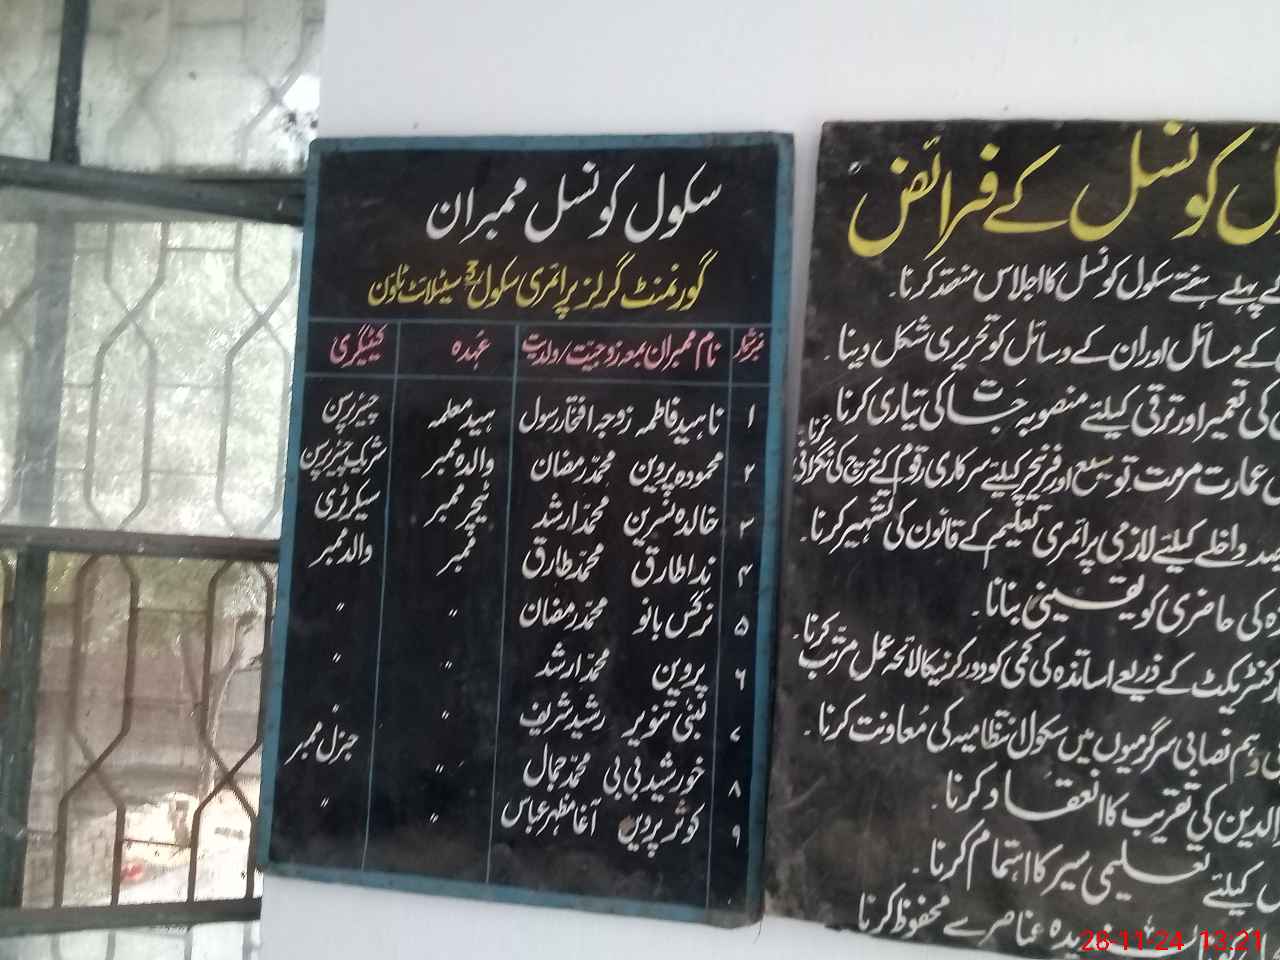 سکول کونسل ممبران
گورنمنٹ گرلز پرائمری سکول 3 سیٹلائٹ ٹاؤن
نمبر شمار نام ممبران بمعہ زوجیت / ولدیت عہدہ کیٹیگری
۱ ناہید فاطمہ زوجہ افتخار رسول ہیڈ معلمہ چیئرپرسن
۲ محمودہ پروین محمد رمضان والدہ ممبر شریک چیئرپرسن
۳ خالدہ نسرین محمد ارشد ٹیچر ممبر سیکرٹری
۴ ندا طارق محمد طارق ممبر والد ممبر
۵ نرگس بانو محمد رمضان 〃 〃
۶ پروین محمد ارشد 〃 〃
۷ لبنیٰ تنویر رشید شریف 〃
۸ خورشید بی بی محمد جمال 〃 جنرل ممبر
۹ کوثر پروین آغا مظہر عباس 〃 〃
کونسل کے فرائض
کے پہلے ہفتے سکول کونسل کا اجلاس منعقد کرنا۔
کے مسائل اور ان کے وسائل کو تحریری شکل دینا۔
کی تعمیر اور ترقی کیلئے منصوبہ جات کی تیاری کرنا
عمارت مرمت توسیع اور فرنیچر کیلئے سرکاری رقوم کے خرچ کی نگرانی کرنا۔
داخلے کیلئے لازمی پرائمری تعلیم کے قانون کی تشہیر کرنا۔
کی حاضری کو یقینی بنانا۔
کنٹریکٹ کے ذریعے اساتذہ کی کمی کو دور کرنیکا لائحہ عمل مرتب کرنا۔
ہم نصابی سرگرمیوں میں سکول انتظامیہ کی معاونت کرنا۔
والدین کی تقریب کا انعقاد کرنا۔
کیلئے تعلیمی سیر کا اہتمام کرنا۔
عناصر سے محفوظ کرنا
26-11-24 13:21